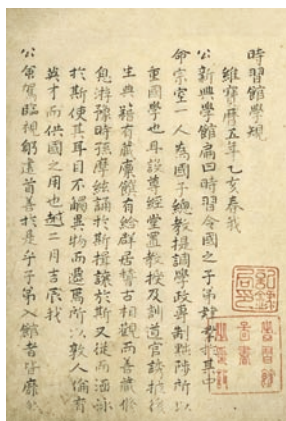 時習館學規
維寶曆五年乙亥春我
公新興學館扁曰時習令國之子弟羣於其中
命宗室一人為國子總教提調學政專制黜陟所以
重國學也且設尊經堂置教授及訓道官諸
生典籍有藏廩餼有給群居稽古相觀而善藏脩
息游豫時孫摩絃誦於斯揖讓於斯又從而涵泳
於斯使其耳目不觸異物而遷焉所以敦人倫育
英才而供國之用也越二月吉辰我
公命駕臨視躬遣首善於是乎子弟入館者皆靡